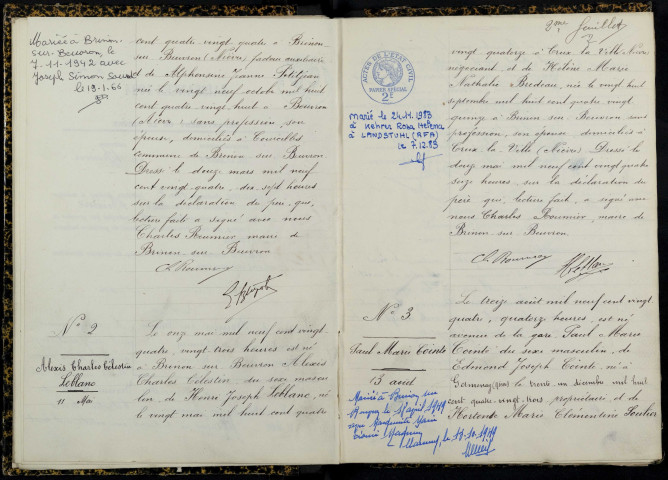 Mariée à Brinon
sur-Beuvron, le
7-11-1942 avec
Joseph Simon
le 19-1-65
cent quatre vingt quatre à Brinon
sur Beuvron (Nièvre) facteur auxiliaire
et de Alphonsine Jeanne Petitjean
née le vingt neuf octobre mil huit
cent quatre vingt huit à Beuvron
(Nièvre) sans profession, son
épouse, domiciliés à Courcelles
commune de Brinon sur Beuvron.
Dressé le douze mars mil neuf
cent vingt quatre, dix sept heures
sur la déclaration du père, qui,
lecture faite a signé avec nous
Charles Roumier, maire de
Brinon sur Beuvron.
Ch Roumier
N° 2
Alexis Charles Célestin
Leblanc
11 Mai
Le onze mai mil neuf cent vingt
quatre, vingt trois heures est né
à Brinon sur Beuvron Alexis
Charles Célestin, du sexe mascu
lin, de Henri Joseph Leblanc, né
le vingt mai mil huit cent quatre
2me feuillet
ACTES DE L'ÉTAT CIVIL
PAPIER SPÉCIAL
2F
Marié le 24.11.1983
à Kehrer Rosa Helena
à LANDSTUHL (RFA)
le 7.12.83
vingt quatorze à Crux la Ville Nièvre
négociant et de Hélène Marie
Nathalie Bredeau, née le vingt huit
septembre mil huit cent quatre vingt
quinze à Brinon sur Beuvron sans
profession, son épouse domiciliés à
Crux-la-Ville (Nièvre) Dressé le
douze mai mil neuf cent vingt quatre
seize heures, sur la déclaration du
père qui, lecture faite, a signé avec
nous Charles Roumier, maire de
Brinon sur Beuvron.
Ch Roumier
H Leblanc
N° 3
Paul Marie Cointe
13 août
Marié à
le 17 avril 1949
avec Marguerite Marie
le 18-10-1949
Le treize août mil neuf cent vingt
quatre, quatorze heures, est né
avenue de la gare Paul Marie
Cointe du sexe masculin, de
Edmond Joseph Cointe, né à
le trente un décembre mil huit
cent quatre-vingt-trois propriétaire et de
Hortense Marie Clémentine